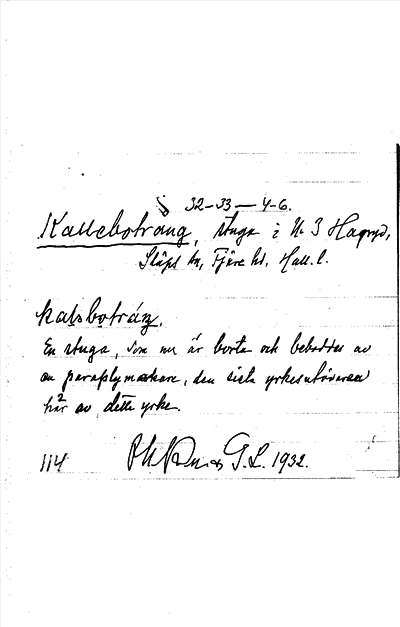 § 32-33-4-6.
Kallebotrång, stuga i N. 3 Hagryd,
Släps sn, Fjäre hd. Hall. l.
En stuga, som nu är borta och beboddes av
en paraplymakare, den sista yrkesutövaren
här av detta yrke.
114 G.L. 1932.